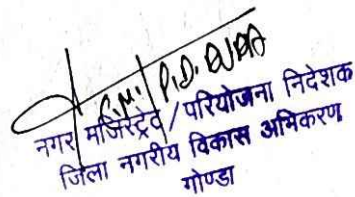 C.M./P.D. DUDA
नगर मजिस्ट्रेट/परियोजना निदेशक
जिला नगरीय विकास अभिकरण
गोण्डा